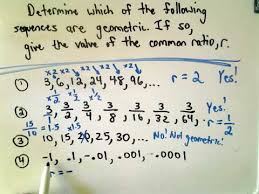 Determine which of the following
sequences are geometric. If so,
give the value of the common ratio, r.
x2 x2 x2 x2 x2
① 3, 6, 12, 24, 48, 96, ... r = 2 Yes!
x 1/2 x 1/2 x 1/2
② 3/2, 3/4, 3/8, 3/16, 3/32, 3/64, r = 1/2 Yes!
15/10 = 1.5 x1.5 x1.5
③ 10, 15, 20, 25, 30, ... No! Not geometric!
④ -1, .1, -.01, .001, -.0001
r = -